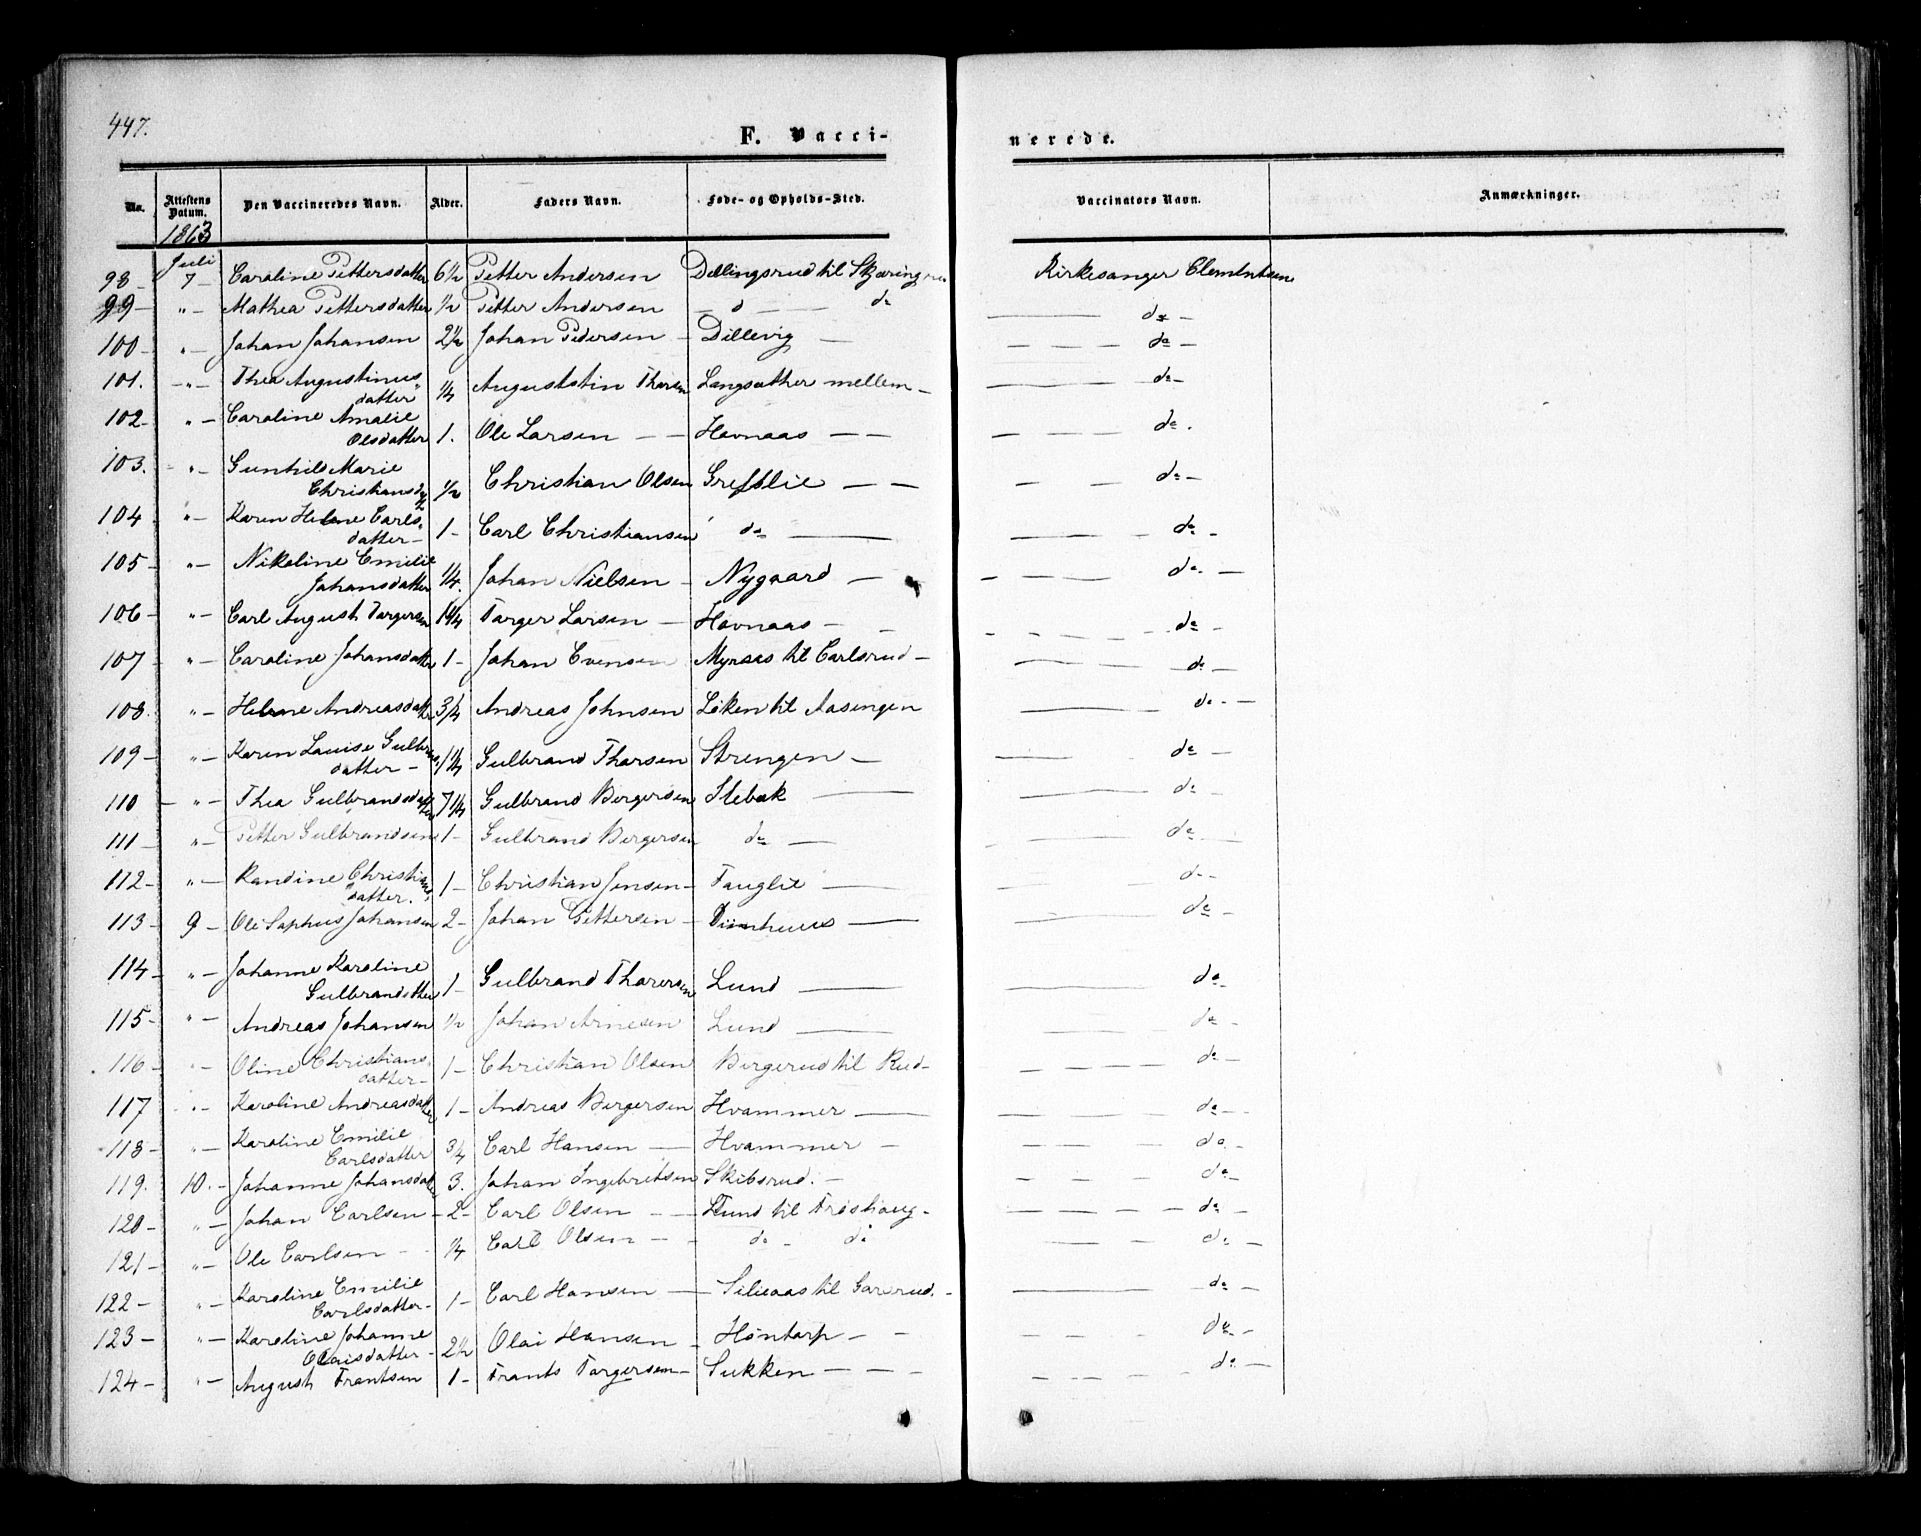 447.
F. Vacci-
nerede.
No. Attestens Datum. Den Vaccineredes Navn. Alder. Faders Navn. Føde- og Opholds-Sted. Vaccinators Navn. Anmærkninger.
1863
Juli
98 – 7 – Caroline Pettersdatter 6½ Petter Andersen Dillingsrud til Skjæringrud Kirkesanger Clementsen
99 – " – Mathea Pettersdatter ½ Petter Andersen – d – – do – do –
100 – " – Johan Johansen 2½ Johan Pedersen – Dillevig – – do –
101. – " – Thea Augustinus-
datter ¼ Auguststin Thorsen Langsæther mellem – – do –
102 – " – Caroline Amalie
Olsdatter 1. Ole Larsen – – Havnaas – – – do.
103. – " – Gunhild Marie
Christiansd. ½ Christian Olsen Grefslie – – – do –
104 " – Karen Helene Carls-
datter – 1 – Carl Christiansen do – – do –
105 – " – Nikoline Emilie
Johansdatter ¼. Johan Nielsen – Nygaard – – do. –
106 – " – Carl August Torgersen 1¼ Torger Larsen – Havnaas – – do –
107 – " – Caroline Johansdatter 1 – Johan Evensen Myraas til Carlsrud – – do –
108. " – Helene Andreasdatter 3/4 Andreas Johnsen Løken til Aasengen – do. –
109 – " – Karen Louise Gulbrands-
datter – 1¼ Gulbrand Thorsen Strengen – – do –
110 – " – Thea Gulbrandsdatter 7¼ Gulbrand Bergersen Stebæk – – do –
111 – " – Petter Gulbrandsen 1 – Gulbrand Bergersen do – – do –
112 – " – Randine Christians-
datter. 1 – Christian Jensen – Fauglie – – do –
113 – 9 – Ole Sophus Johansen 2 – Johan Pettersen – – – do –
114 – " – Johanne Karoline
Gulbrandsdtter 1 – Gulbrand Thorersen Lund – – do –
115 – " – Andreas Johansen ½ Johan Arnesen Lund – – do –
116 – " – Oline Christians-
datter – 1 – Christian Olsen Bergerud til Rud – – do –
117 " – Karoline Andreasdatter 1 – Andreas Bergersen Hvammer – – do –
118 – " – Karoline Emilie
Carlsdatter 3/4 Carl Hansen – Hvammer – – do. –
119. 10. – Johanne Johansdatter 3. Johan Ingebretsen Skibsrud. – – do –
120 – " – Johan Carlsen – 2 – Carl Olsen – – Lund til Frøshaug – – do –
121 – " – Ole Carlsen – ¼ Carl Olsen – – do – do – do –
122 – " – Karoline Emilie
Carlsdatter – 1 – Carl Hansen – Silieaas til Garsrud. – – do –
123 – " – Karoline Johanne
Olaisdatter – 2½ Olai Hansen – Høntorp – – – do –
124 – " – August Frantsen 1 – Frants Torgersen – Sukken – – – – do –